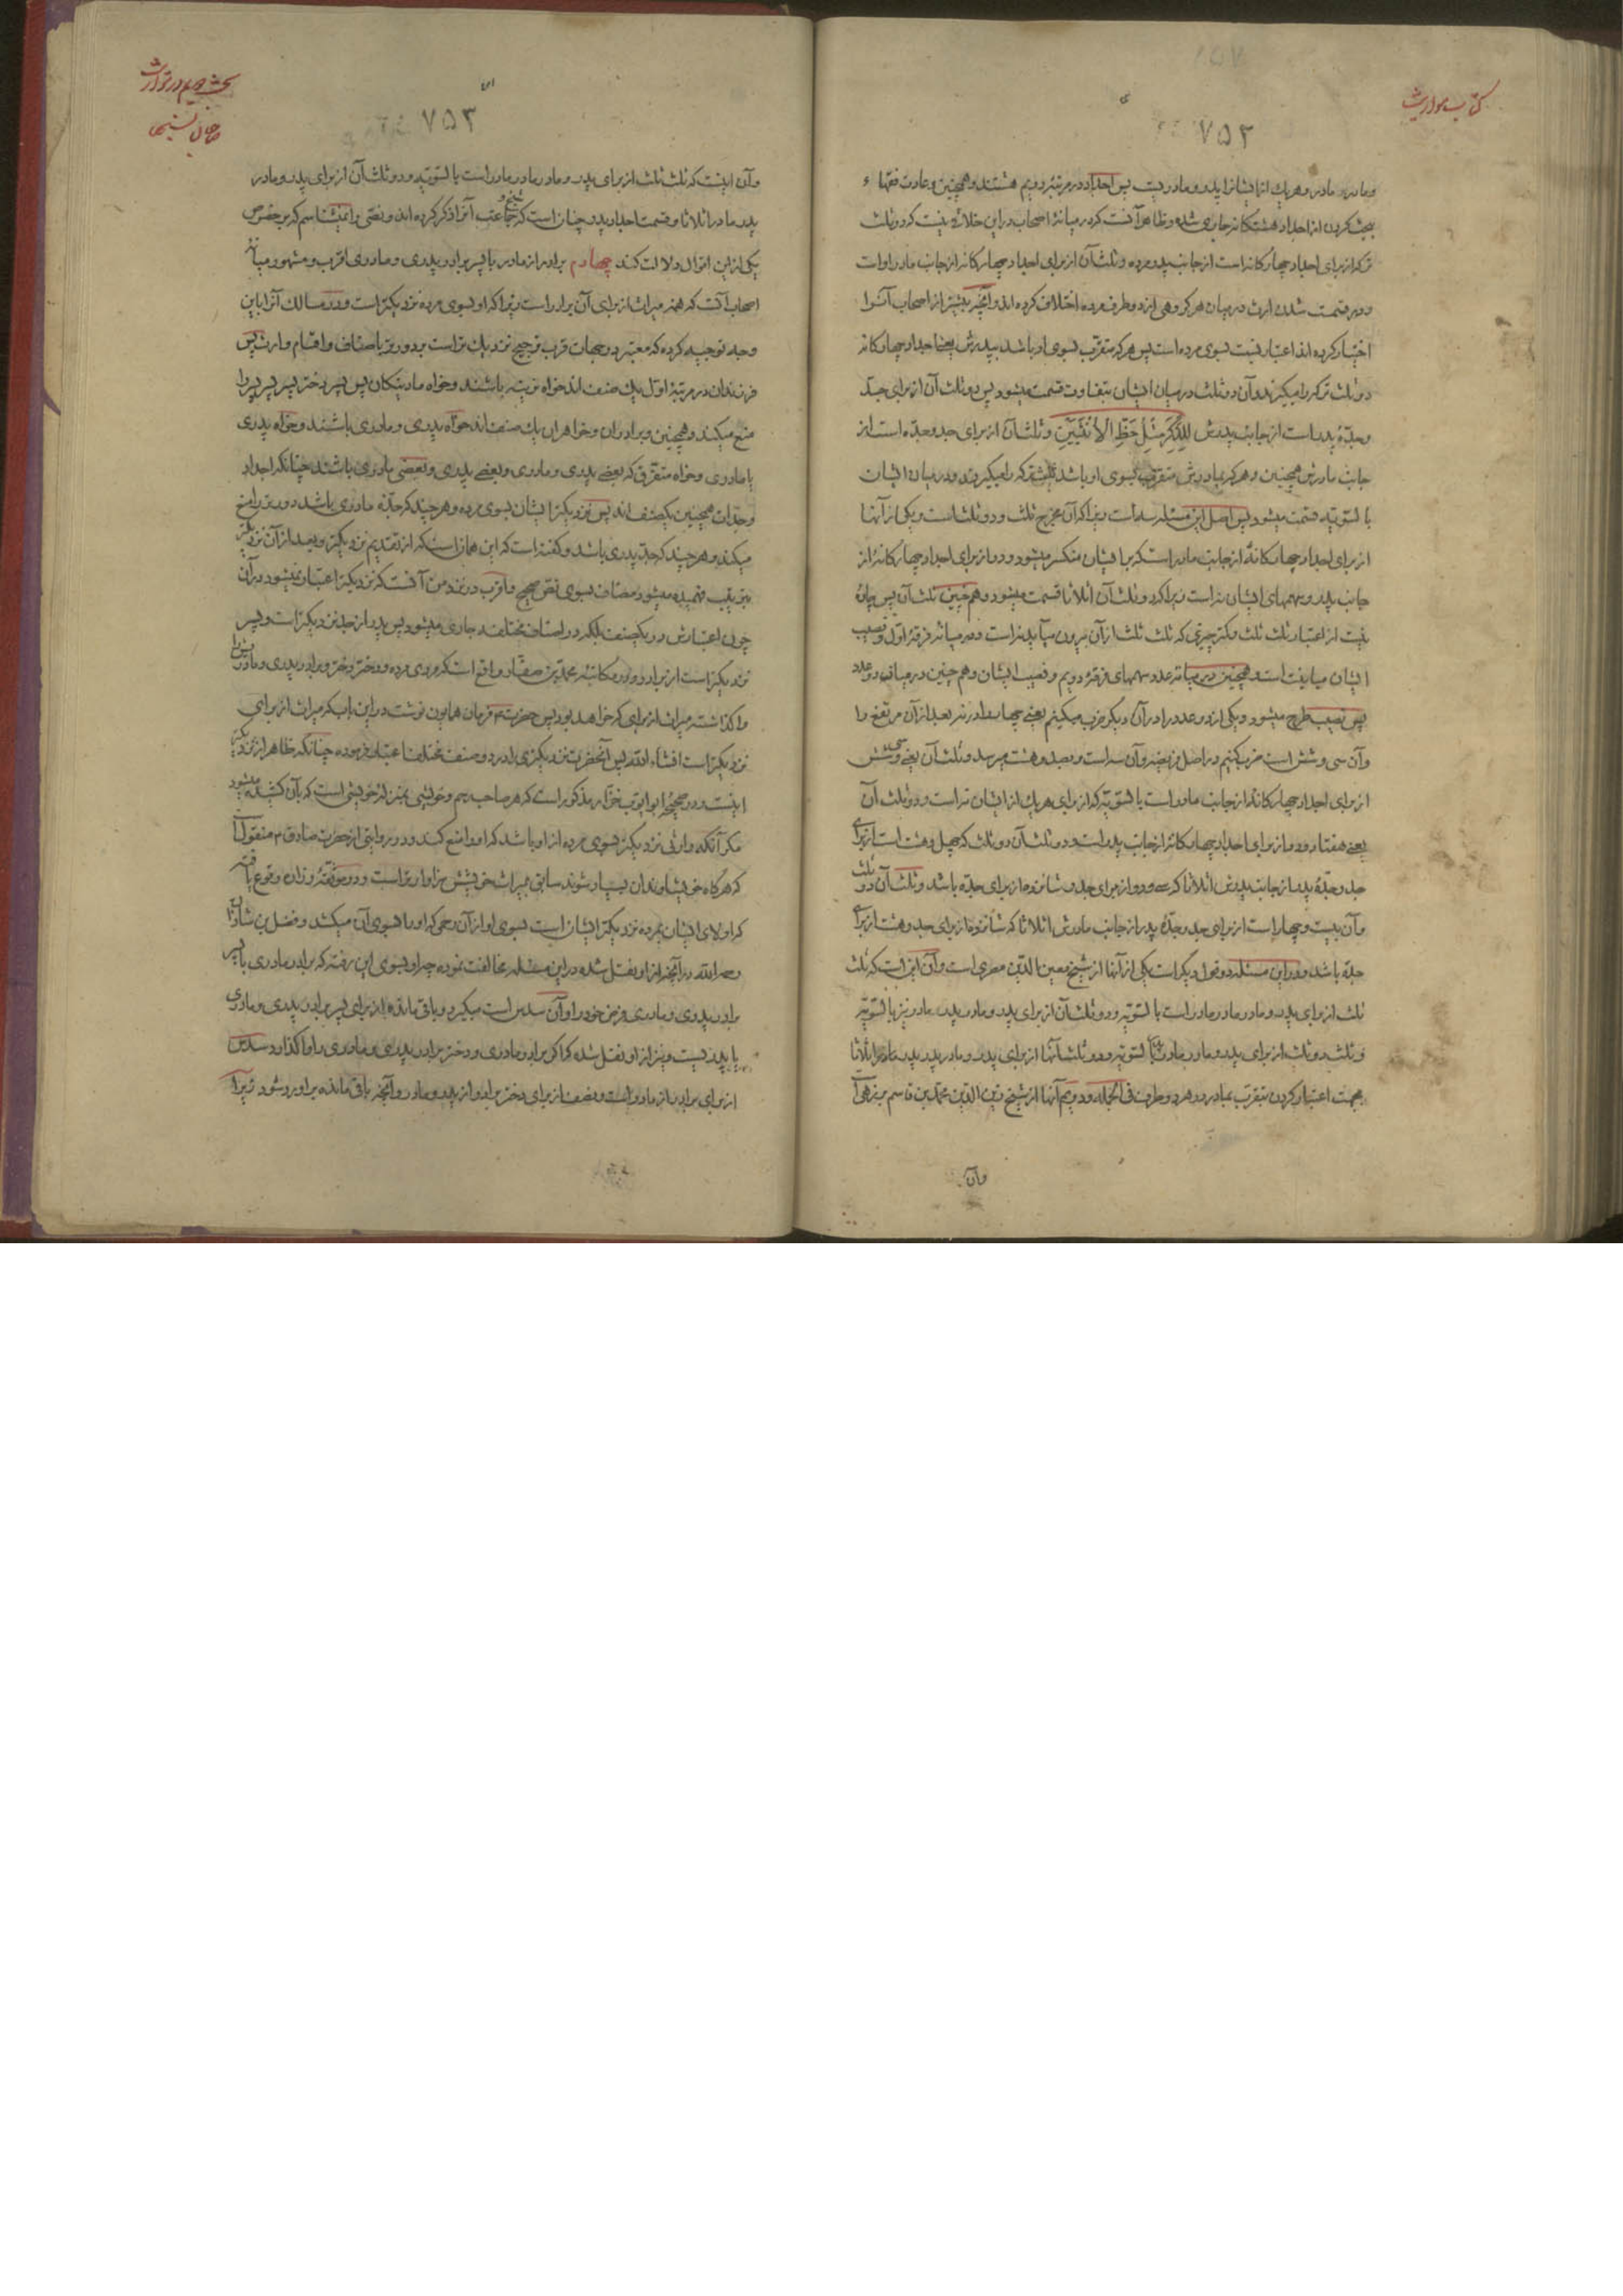 كتاب مواريث
٧٥٢
و مادر مادر و هر يك از ايشان را پدر و مادريست پس اجداد در مرتبهٔ دويم هشتند و همچنين و عادت فقهاء
بحث كردن از اجداد هشتكانه جارى شده و ظاهر آنست كه در ميانهٔ اصحاب در اين خلافى نيست كه دو ثلث
تركه از براى اجداد چهاركانه است از جانب پدر مرده و ثلث آن از براى اجداد چهاركانه از جانب مادر اوست
و در قسمت شدن ارث در ميان هر كروهى از دو طرف مرده اختلاف كرده اند و آنچه بيشتر از اصحاب آنرا
اختيار كرده اند اعتبار نسبت بسوى مرده است پس هر كه متقرب بسوى او باشد بپدرش يعنى اجداد چهاركانه
دو ثلث تركه را ميكيرند و آن دو ثلث در ميان ايشان بتفاوت قسمت ميشود پس دو ثلث آن از براى جد
و جدهٔ پدر است از جانب پدرش لِلذَّكَرِ مِثْلُ حَظِّ الْأُنْثَيَيْنِ و ثلث آن از براى جد و جده است از
جانب مادرش همچنين و هر كه بمادرش متقرب بسوى او باشد ثلث تركه را ميكيرند و در ميان ايشان
بالسويه قسمت ميشود پس اصل اين مسئله سه است زيرا كه آن مخرج ثلث و دو ثلث است و يكى از آنها
از براى اجداد چهاركانهٔ از جانب مادر است كه بر ايشان منكسر ميشود و دو از براى اجداد چهاركانه از
جانب پدر و سهمهاى ايشان نه است زيرا كه دو ثلث آن اثلاثا قسمت ميشود و هم چنين ثلث آن پس چارهٔ
نيست از اعتبار ثلث ثلث و كمتر چيزى كه ثلث ثلث از آن بيرون ميآيد نه است و در ميانهٔ فرقهٔ اول و نصيب
ايشان مباينت است و همچنين در ميانهٔ عدد سهمهاى فرقهٔ دويم و نصيب ايشان و هم چنين در ميان دو عدد
پس نصيب طرح ميشود و يكى از دو عدد را در آن ديكر ضرب ميكنيم يعنى چهار را در نه بعد از آن مرتفع را
و آن سى و شش است ضرب كنيم در اصل فريضه و آن سه است و بصد و هشت ميرسد و ثلث آن يعنى سى و شش
از براى اجداد چهاركانه از جانب مادر است بالسويه كه از براى هر يك از ايشان نه است و دو ثلث آن
يعنى هفتاد و دو از براى اجداد چهاركانه از جانب پدر است و دو ثلث آن دو ثلث كه چهل و هشت است از براى
جد و جدهٔ پدر از جانب پدرش اثلاثا كه سى و دو از براى جد و شانزده از براى جده باشد و ثلث آن دو ثلث
و آن بيست و چهار است از براى جد و جدهٔ پدر از جانب مادرش اثلاثا كه شانزده از براى جد و هشت از براى
جده باشد و در اين مسئله دو قول ديكر است يكى از آنها از شيخ معين الدين مصرى است و آن اين است كه ثلث
ثلث از براى پدر و مادر مادر مادر است بالسويه و دو ثلث آن از براى پدر و مادر پدر مادر نيز بالسويه
و ثلث دو ثلث از براى پدر و مادر مادر پدر بالسويه و دو ثلث آنها از براى پدر و مادر پدر پدر اثلاثا
بجهت اعتبار كردن تقرب بمادر در هر دو طرف فى الجمله و دويم آنها از شيخ زين الدين محمد بن قاسم برزهى است
وآن
بحث دويم در توارث
صاحبان نسبها
٧٥٣
و آن اينست كه ثلث ثلث از براى پدر و مادر مادر مادر است بالسويه و دو ثلث آن از براى پدر و مادر
پدر مادر اثلاثا و قسمت اجداد پدر چنان است كه شيخ و جماعت آنرا ذكر كرده اند و نصى را نمىشناسم كه بر خصوص
يكى از اين اقوال دلالت كند چهارم برادر از مادر با پسر برادر پدرى و مادرى اقرب و مشهور ميانهٔ
اصحاب آنست كه همهٔ ميراث از براى آن برادر است زيرا كه او بسوى مرده نزديكتر است و در مسالك آنرا باين
وجه توجيه كرده كه معتبر در جهات قرب ترجيح نزديك تر است بر دورتر باصناف و اقسام وارث پس
فرزندان در مرتبهٔ اول يك صنف اند خواه نرينه باشند و خواه مادينكان پس پسر دختر پسر پسر پسر را
منع ميكند و همچنين و برادران و خواهران يك صنف اند خواه پدرى و مادرى باشند و خواه پدرى
يا مادرى و خواه متفرق كه بعضى پدرى و مادرى و بعضى پدرى و بعضى مادرى باشند چنانكه اجداد
و جدات همچنين يكصنف اند پس نزديكتر ايشان بسوى مرده و هر چند كه جدهٔ مادرى باشد دورتر را منع
ميكند و هر چند كه جد پدرى باشد و كفته است كه اين همان است كه از تقديم نزديكتر و بعد از آن نزديكتر
بترتيب فهميده ميشود مضاف بسوى نص صحيح و اقرب در نزد من آنست كه نزديكتر اعتبار نميشود در آن
چون اعتبارش در يكصنف بلكه در اصناف مختلفه جارى ميشود پس پدر از جد نزديكتر است و پسر
نزديكتر است از برادر و در مكاتبهٔ محمد بن صفار واقع است كه مردى مرده و دختر دختر و برادر پدرى و مادرش را
واكذاشته ميراث از براى كه خواهد بود پس حضرت ع فرمان همايون نوشت در اين باب كه ميراث از براى
نزديكتر است انشاء الله پس آنحضرت نزديكترى را در دو صنف مختلف اعتبار فرموده چنانكه ظاهر از نزديكتر
اينست و در صحيحهٔ ابو ايوب خزاز مذكور است كه هر صاحب رحم و خويشى بمنزلهٔ خويشى است كه بآن كشيده ميشود
مكر آنكه وارثى نزديكتر بسوى مرده از او باشد كه او را منع كند و در روايتى از حضرت صادق ع منقول است
كه هركاه خويشاوندان بسيار شوند سابق بميراث خويشش سزاوارتر است و در موثقهٔ زراره وقوع يافته
كه اولاى ايشان بمرده نزديكتر ايشان است بسوى او از آن رحمى كه او را بسوى آن ميكشد و فضل بن شاذان
رحمه الله در آنچه از او نقل شده در اين مسئله مخالفت نموده چه او بسوى اين رفته كه برادر مادرى با پسر
برادر پدرى و مادرى فرض خود را و آن سدس است ميكيرد و باقى مانده از براى پسر برادر پدرى و مادرى
يا پدريست و نيز از او نقل شده كه اكر برادر مادرى و دختر برادر پدرى و مادرى را واكذارد سدس
از براى برادر از مادر است و نصف از براى دختر برادر از پدر و مادر و آنچه باقى مانده بر او رد شود زيرا